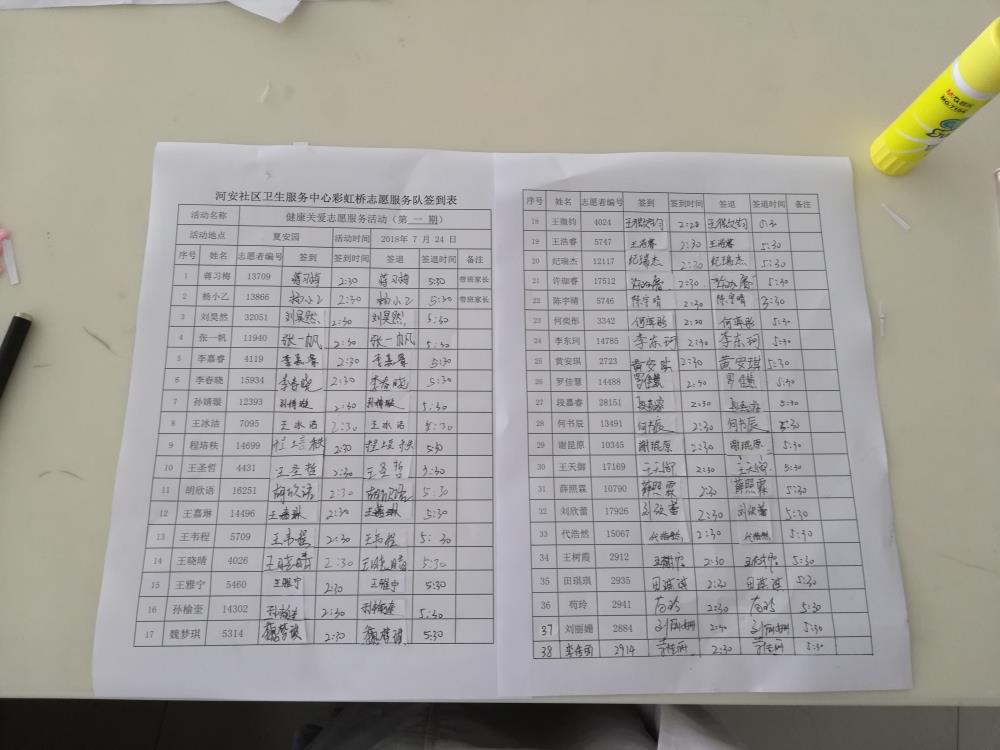 河安社区卫生服务中心彩虹桥志愿服务队签到表
活动名称 健康关爱志愿服务活动（第 一 期）
活动地点 夏安园 活动时间 2018年 7 月 24 日
序号 姓名 志愿者编号 签到 签到时间 签退 签退时间 备注
1 蒋习梅 13709 蒋习梅 2:30 蒋习梅 5:30 带班家长
2 杨小乙 13866 杨小乙 2:30 杨小乙 5:30 带班家长
3 刘昊然 32051 刘昊然 2:30 刘昊然 5:30
4 张一帆 11940 张一帆 2:30 张一帆 5:30
5 李嘉睿 4119 李嘉睿 2:30 李嘉睿 5:30
6 李春晓 15934 李春晓 2:30 李春晓 5:30
7 孙婧璇 12393 孙婧璇 2:30 孙婧璇 5:30
8 王冰洁 7095 王冰洁 2:30 王冰洁 5:30
9 程培秩 14699 程培秩 2:30 程培秩 5:30
10 王圣哲 4431 王圣哲 2:30 王圣哲 5:30
11 胡欣语 16251 胡欣语 2:30 胡欣语 5:30
12 王嘉琳 14496 王嘉琳 2:30 王嘉琳 5:30
13 王韦程 5709 王韦程 2:30 王韦程 5:30
14 王晓晴 4026 王晓晴 2:30 王晓晴 5:30
15 王雅宁 5460 王雅宁 2:30 王雅宁 5:30
16 孙榆奎 14302 孙榆奎 2:30 孙榆奎 5:30
17 魏梦琪 5314 魏梦琪 2:30 魏梦琪 5:30
序号 姓名 志愿者编号 签到 签到时间 签退 签退时间 备注
18 王微钧 4024 王微钧 2:28 王微钧 5:30
19 王浩睿 5747 王浩睿 2:30 王浩睿 5:30
20 纪瑞杰 12117 纪瑞杰 2:30 纪瑞杰 5:30
21 许珈睿 17512 许珈睿 2:30 许珈睿 5:30
22 陈宇晴 5746 陈宇晴 2:30 陈宇晴 5:30
23 何奕彤 3342 何奕彤 2:30 何奕彤 5:30
24 李东珂 14785 李东珂 2:30 李东珂 5:30
25 黄安琪 2723 黄安琪 2:30 黄安琪 5:30
26 罗佳慧 14488 罗佳慧 2:30 罗佳慧 5:30
27 段嘉睿 28151 段嘉睿 2:30 段嘉睿 5:30
28 何书辰 13491 何书辰 2:30 何书辰 5:30
29 谢昆原 10345 谢琨原 2:30 谢琨原 5:30
30 王天御 17169 王天御 2:30 王天御 5:30
31 薛照霖 10790 薛照霖 2:30 薛照霖 5:30
32 刘欣蕾 17926 刘欣蕾 2:30 刘欣蕾 5:30
33 代浩然 15067 代浩然 2:30 代浩然 5:30
34 王树霞 2912 2:30 5:30
35 田琪琪 2935 田琪琪 2:30 田琪琪 5:30
36 苟玲 2941 苟玲 2:30 苟玲 5:30
37 刘丽姗 2884 刘丽姗 2:30 刘丽姗 5:30
38 2914 2:30 5:30
M&G
MG7104